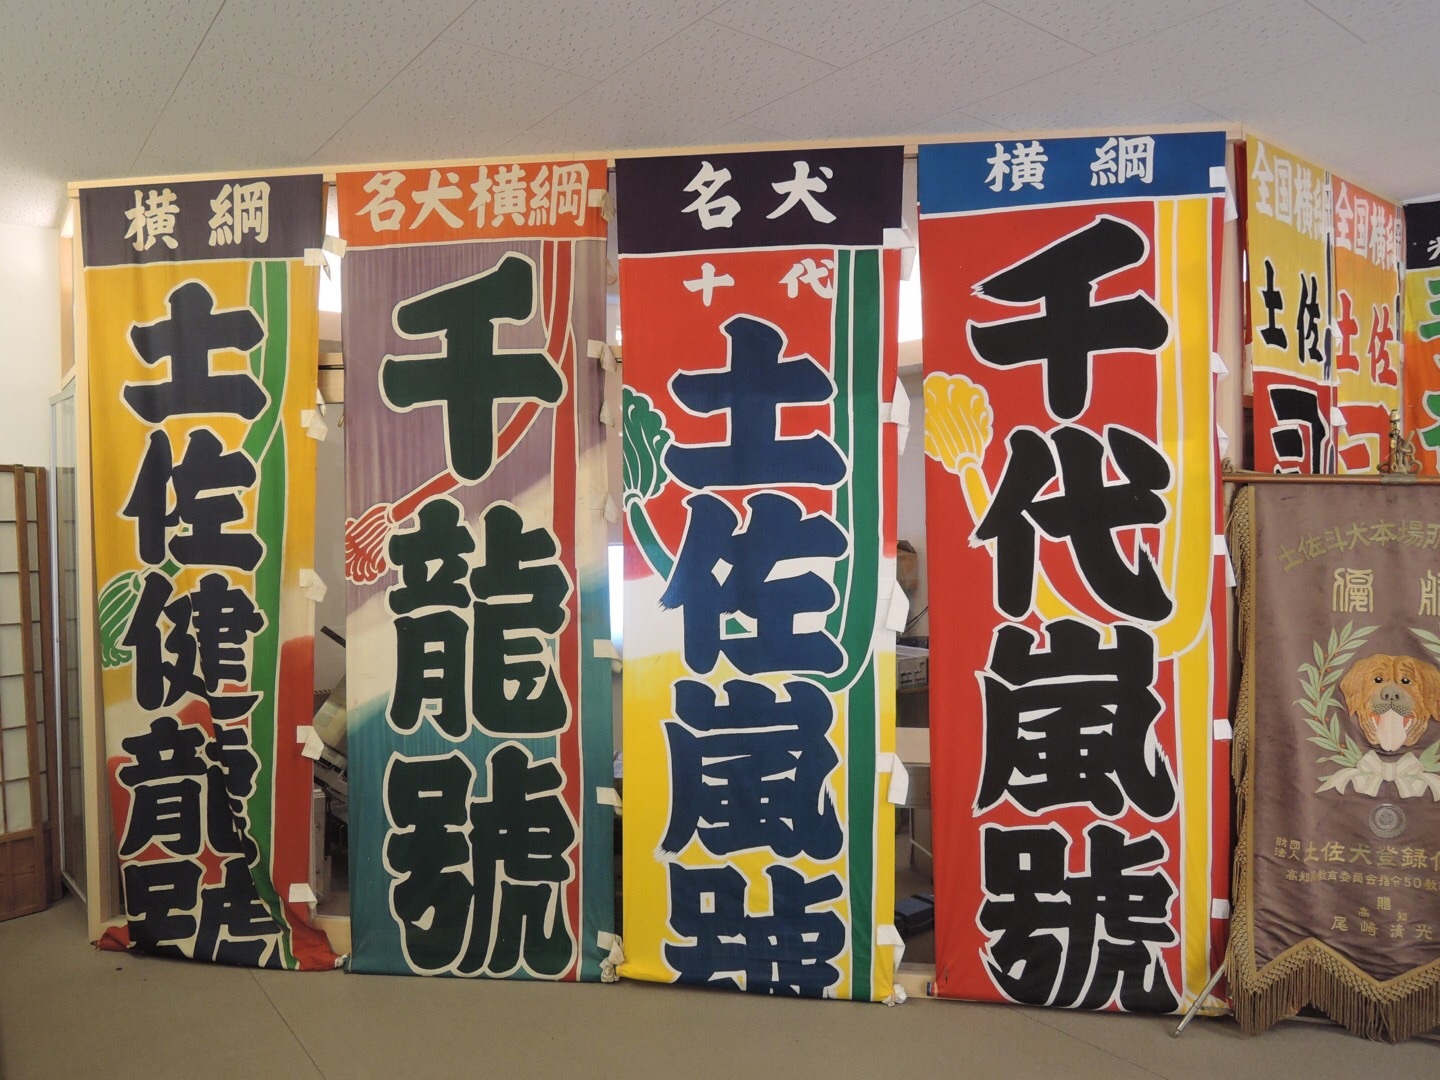 横綱
土佐健龍號
名犬横綱
千龍號
名犬
十代
土佐嵐號
横綱
千代嵐號
全国横綱
土佐
司
全国横綱
土佐
土佐斗犬本場所
優勝
財団法人土佐犬登録
高知県教育委員会指令50教
贈
高知
尾崎清光